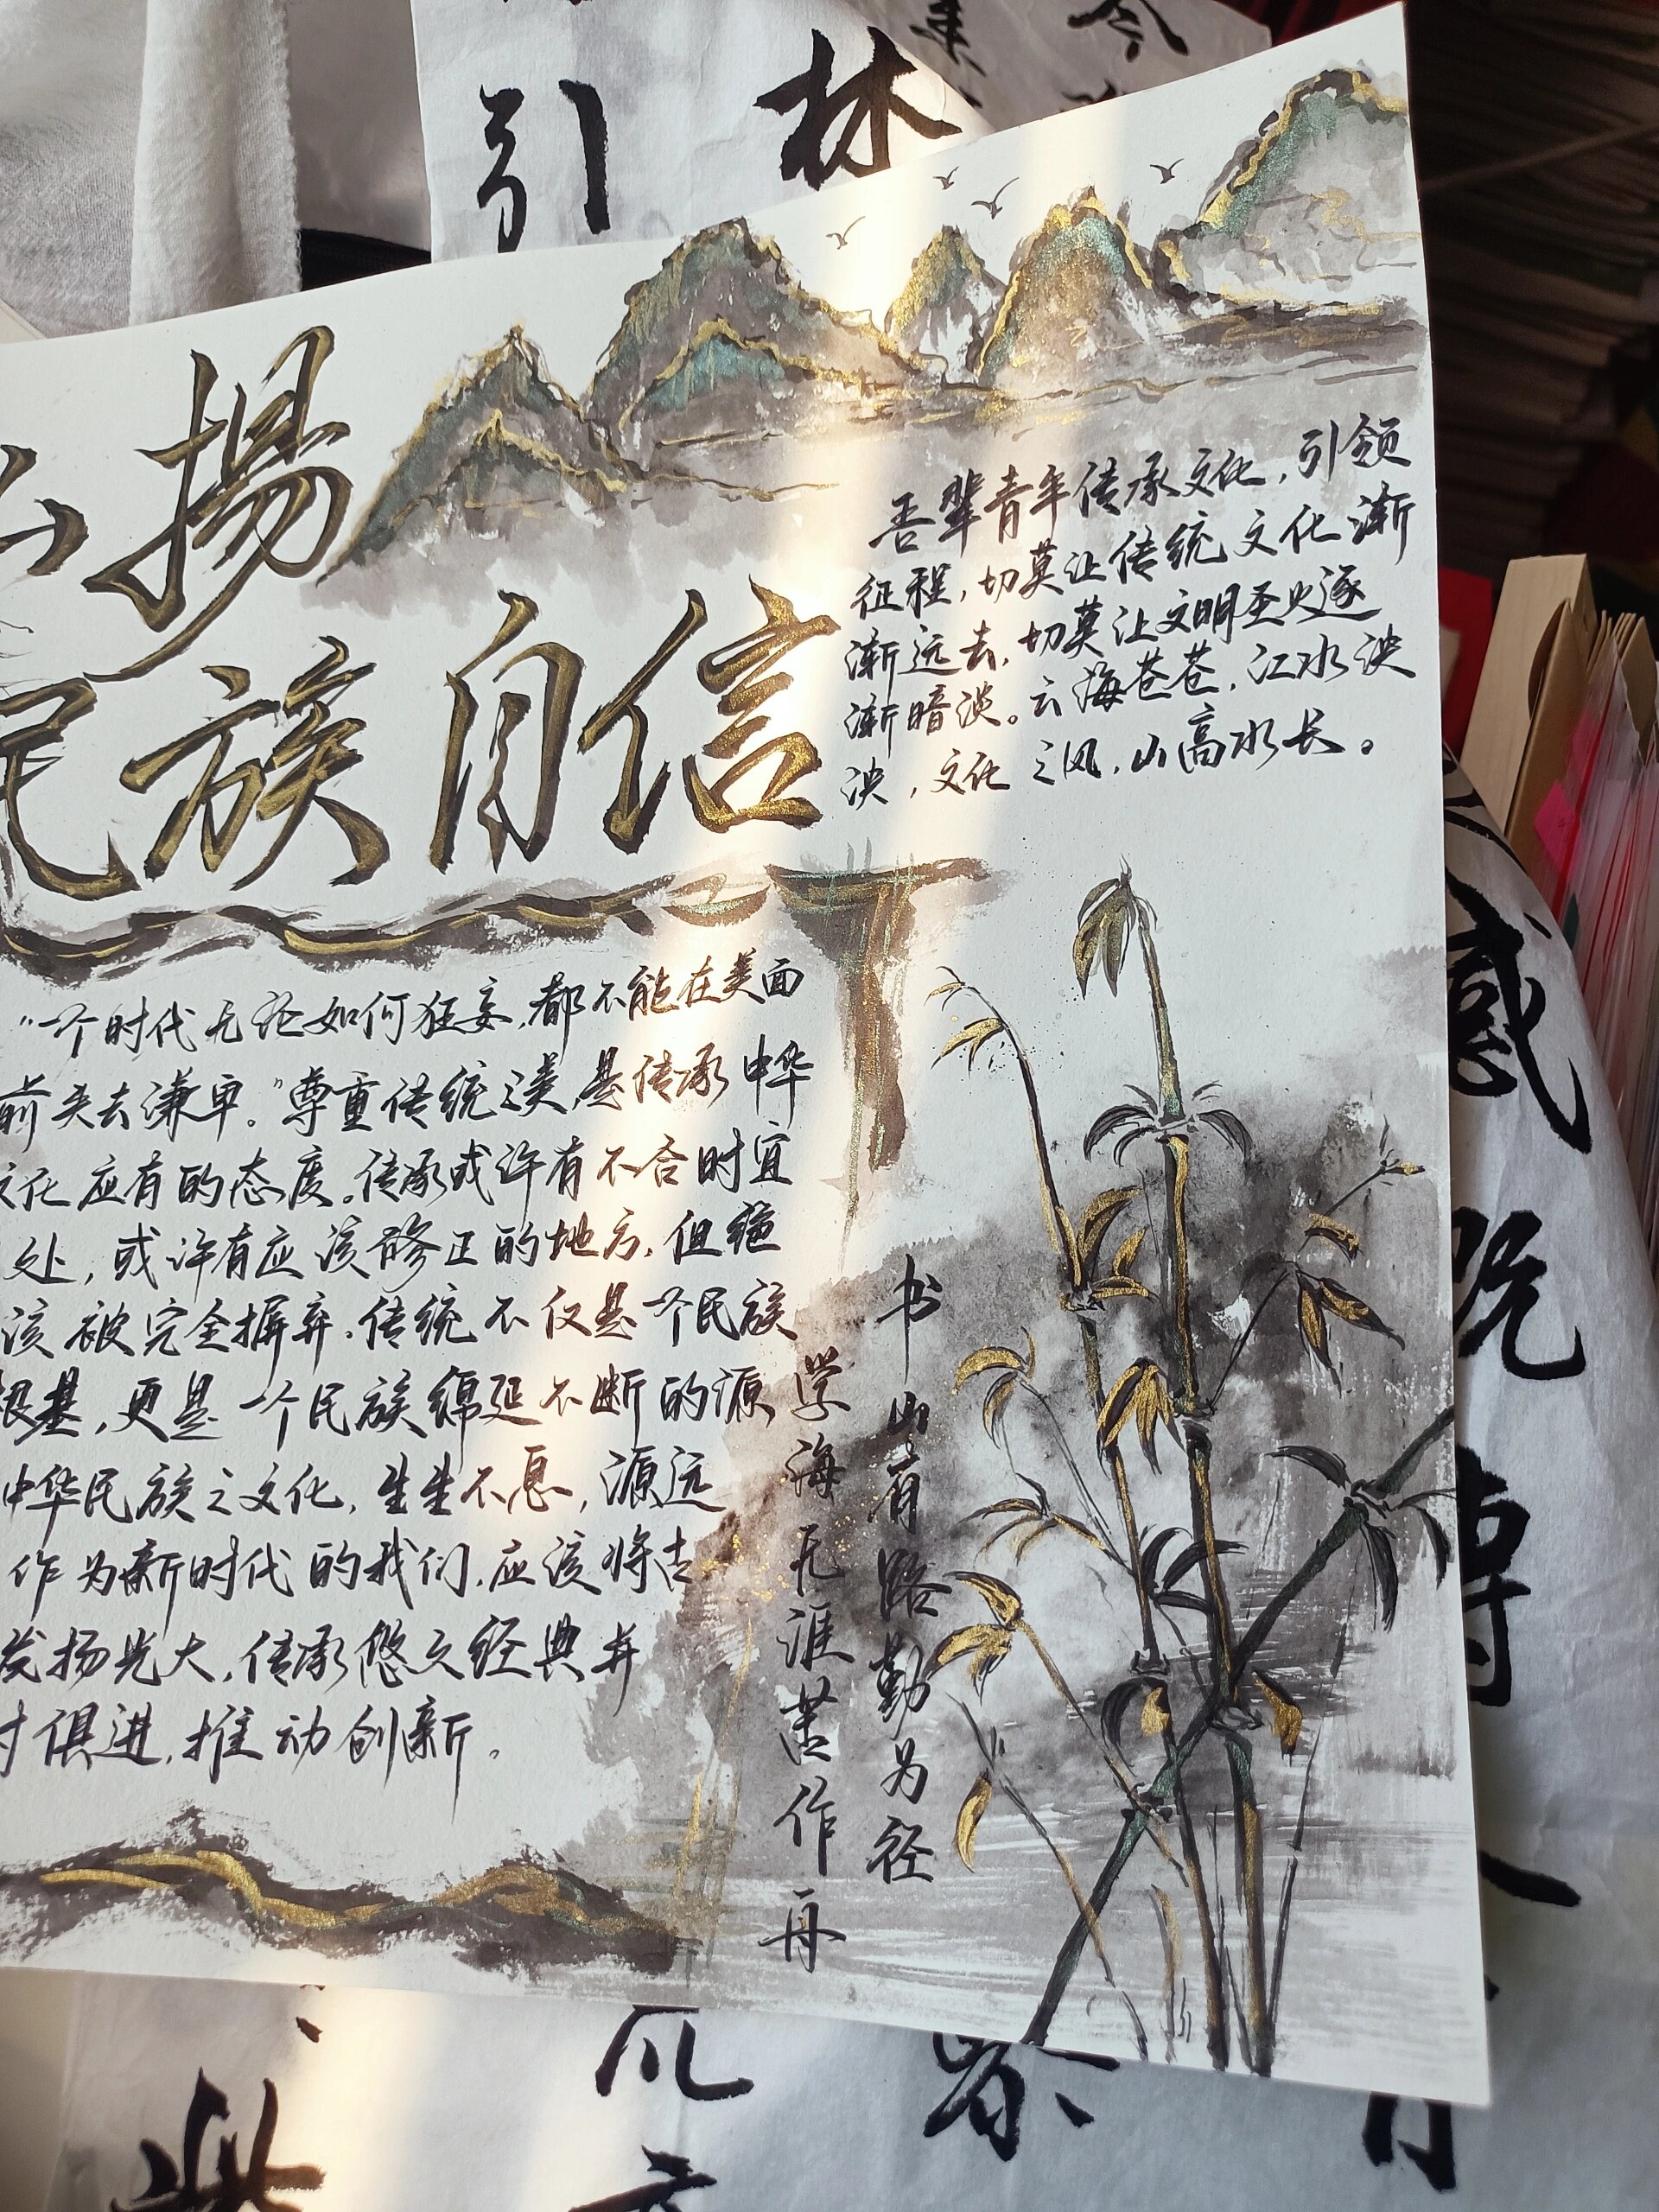 揚
民族自信
吾辈青年传承文化，引领
征程，切莫让传统文化渐
渐远去，切莫让文明圣火逐
渐暗淡。云海苍苍，江水泱
泱，文化之风，山高水长。
“一个时代无论如何狂妄，都不能在美面
前失去谦卑。”尊重传统之美，是传承中华
文化应有的态度。传承或许有不合时宜
处，或许有应该修正的地方，但绝
该被完全摒弃。传统不仅是一个民族
根基，更是一个民族绵延不断的源
中华民族之文化，生生不息，源远
作为新时代的我们，应该将古
发扬光大，传承悠久经典并
时俱进，推动创新。
书山有路勤为径
学海无涯苦作舟
引
林
感
慨